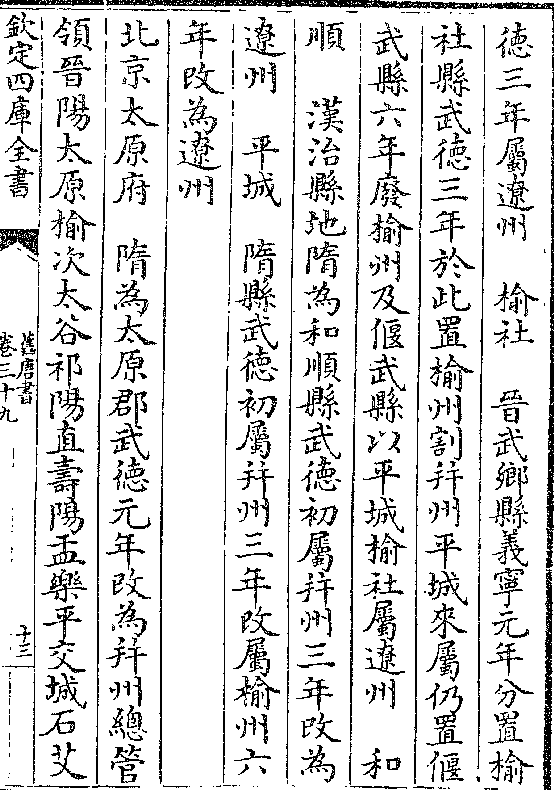 德三年屬遼州　榆社　晉武鄉縣義寧元年分置榆
社縣武德三年於此置榆州割幷州平城來屬仍置偃
武縣六年廢榆州及偃武縣以平城榆社屬遼州　和
順　漢沾縣地隋為和順縣武德初屬幷州三年改為
遼州　平城　隋縣武德初屬幷州三年改屬榆州六
年改為遼州
北京太原府　隋為太原郡武德元年改為幷州總管
領晉陽太原榆次太谷祁陽直壽陽盂樂平交城石艾
欽定四庫全書
舊唐書
卷三十九
十三